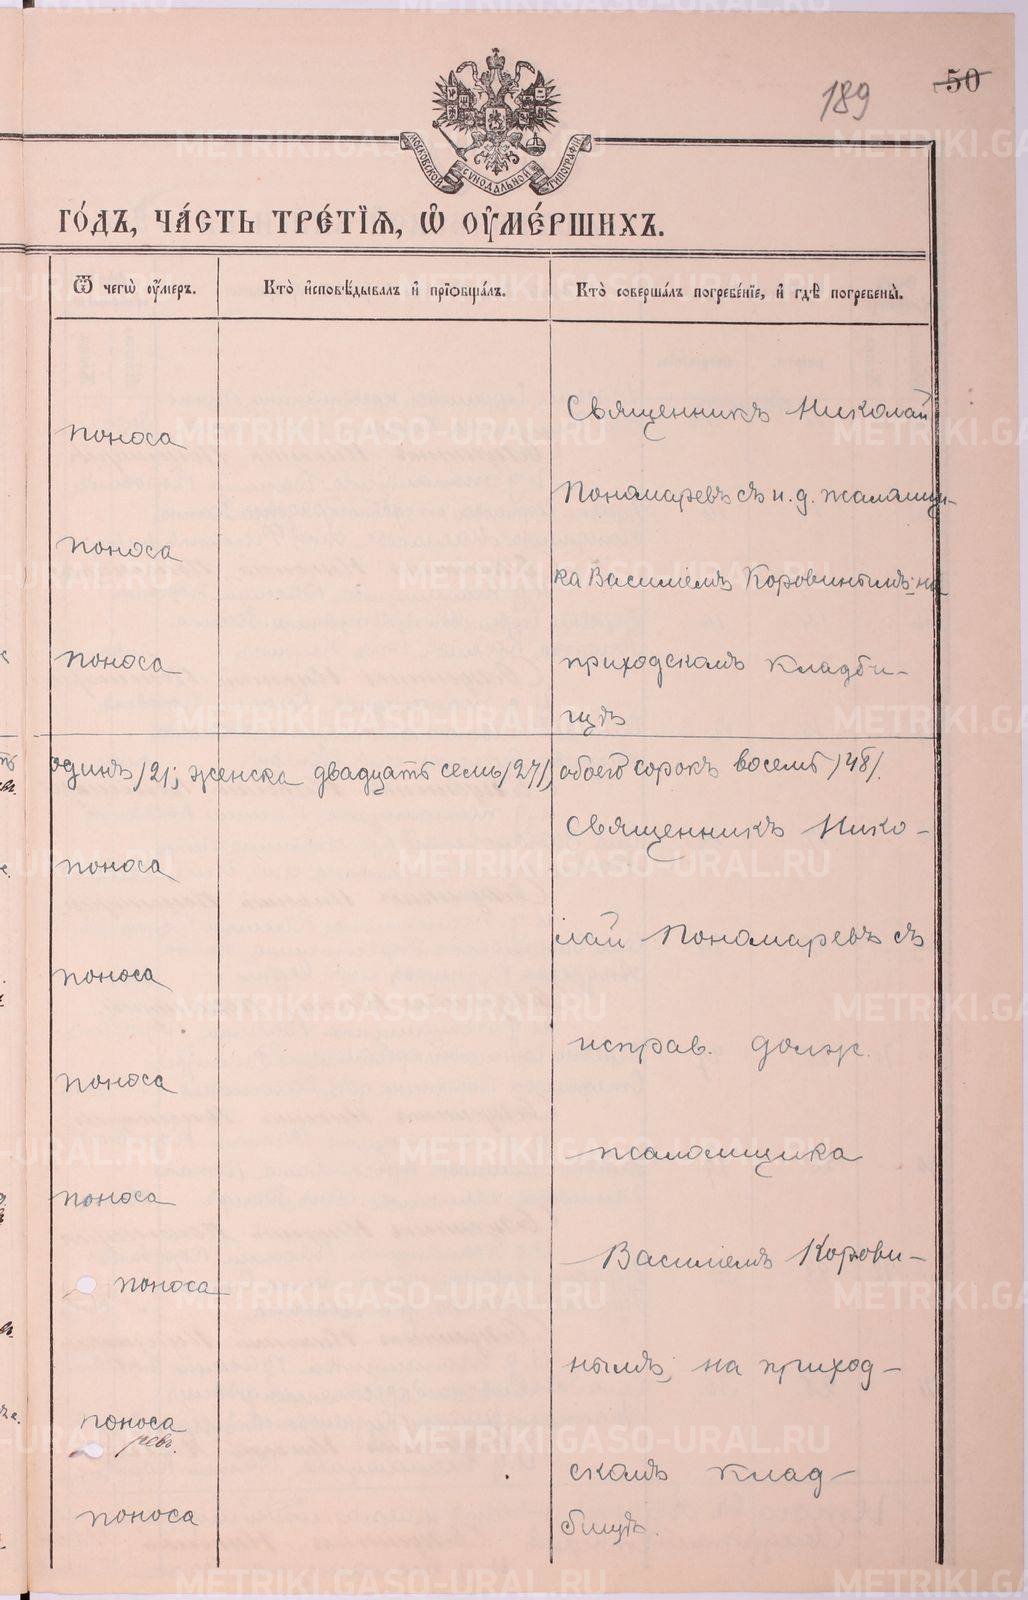 189 50
МОСКОВСКОЙ СѴНОДАЛЬНОЙ ТИПОГРАФІИ
ГО́ДЪ, ЧА́СТЬ ТРЕ́ТІѦ, Ѡ҆ ОУ҆МЕ́РШИХЪ.
Ѿ чегѡ̀ оу҆́меръ. Кто̀ и҆сповѣ́дывалъ и҆ прїѡбща́лъ. Кто̀ соверша́лъ погребе́нїе, и҆ гдѣ̀ погребены̀.
Священникъ Николай
поноса
Пономаревъ съ и.д. псаломщи-
поноса
ка Василіемъ Коровинымъ: на
поноса
приходскомъ кладби-
щѣ
одинъ /21; женска двадцать семь /27/, обоего сорокъ восемь /48/.
Священникъ Нико-
поноса
лай Пономаревъ съ
поноса
исправ. долж.
поноса
псаломщика
поноса
Василіемъ Корови-
поноса
нымъ, на приход-
поноса
рев.
скомъ клад-
поноса
бищѣ.
METRIKI.GASO-URAL.RU